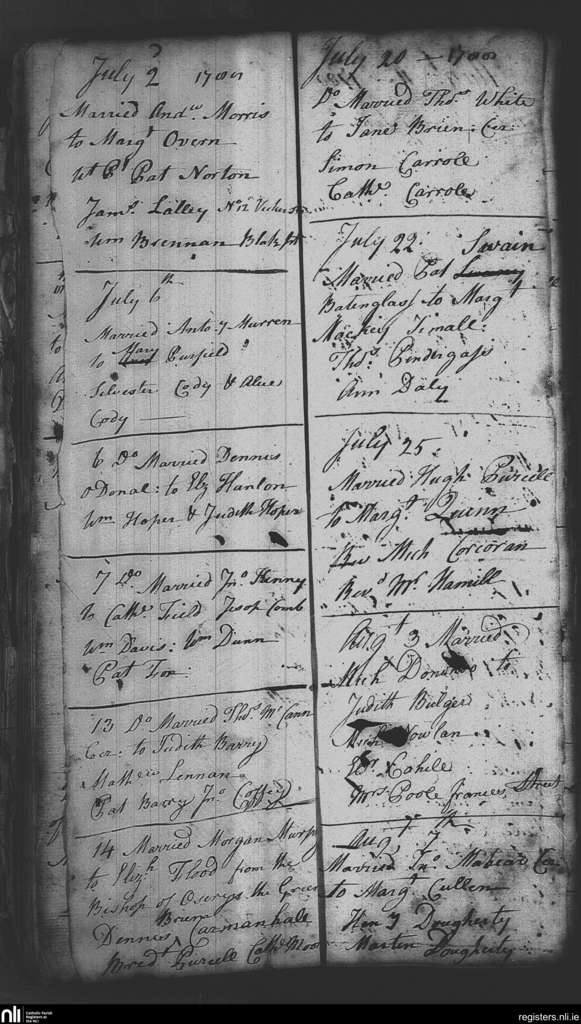 July 2 1788
Married Andw Morris
to Margt Overn
Wt Ps Pat Norton
Jams Lalley No 12
Wm Brennan
July 6th
Married Antoy Murren
to Mary Pursield
Silvester Cody & Alice
Cody
6 Do Married Dennis
oDonal: to Elz Hanlon
Wm Hoper & Judith Hoper
7 Do Married Jno Kenny
to Cathe Field
Wm Davis: Wm Dunn
Pat Fox
13 Do Married Thos McCann
Cer: to Judith Barry
Mathew Lennan
Pat Barry Jno Coffey
14 Married Morgan Murpy
to Elizh Flood from the
Bishop of Oserys the Green
Brien
Dennis Carmanhall
Bredt Purcell Cathe Moor
July 20 - 1788
Do Married Thos White
to Jane Brien: Cer
Simon Carroll
Cathe Carroll
July 22: Swain
Married Pat
Batinglass to Margt
Mackey
Thos Pindergass
Ann Daly
July 25
Married Hugh Purcell
to Margt Quinn
Rev Mich Corcoran
Revd Mr Hamill
Augt 3 Married
Michl to
Judith Bulger
Nowlan
Cahill
Mrs Poole Frances Street
Augt 7th
Married Jno Cer
to Margt Cullen
Heny Dougherty
Martin Dougherty
nli
Catholic Parish
Registers at
the NLI
registers.nli.ie